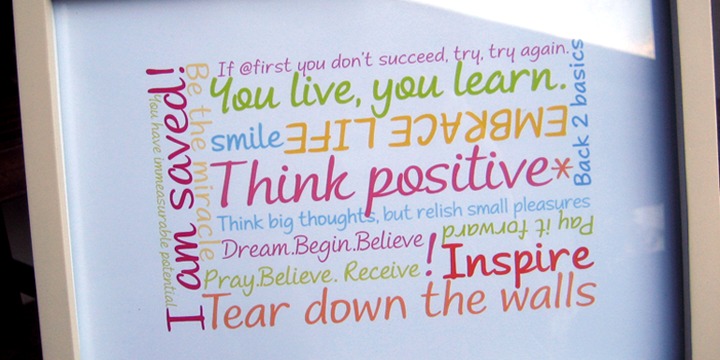 If @first you don't succeed, try, try again.
You live, you learn.
smile
EMBRACE LIFE
Think positive*
Think big thoughts, but relish small pleasures
Dream.Begin.Believe
!
Pay it forward
Pray.Believe. Receive
Inspire
Tear down the walls
I am saved!
Be the miracle
You have immeasurable potential
Back 2 basics